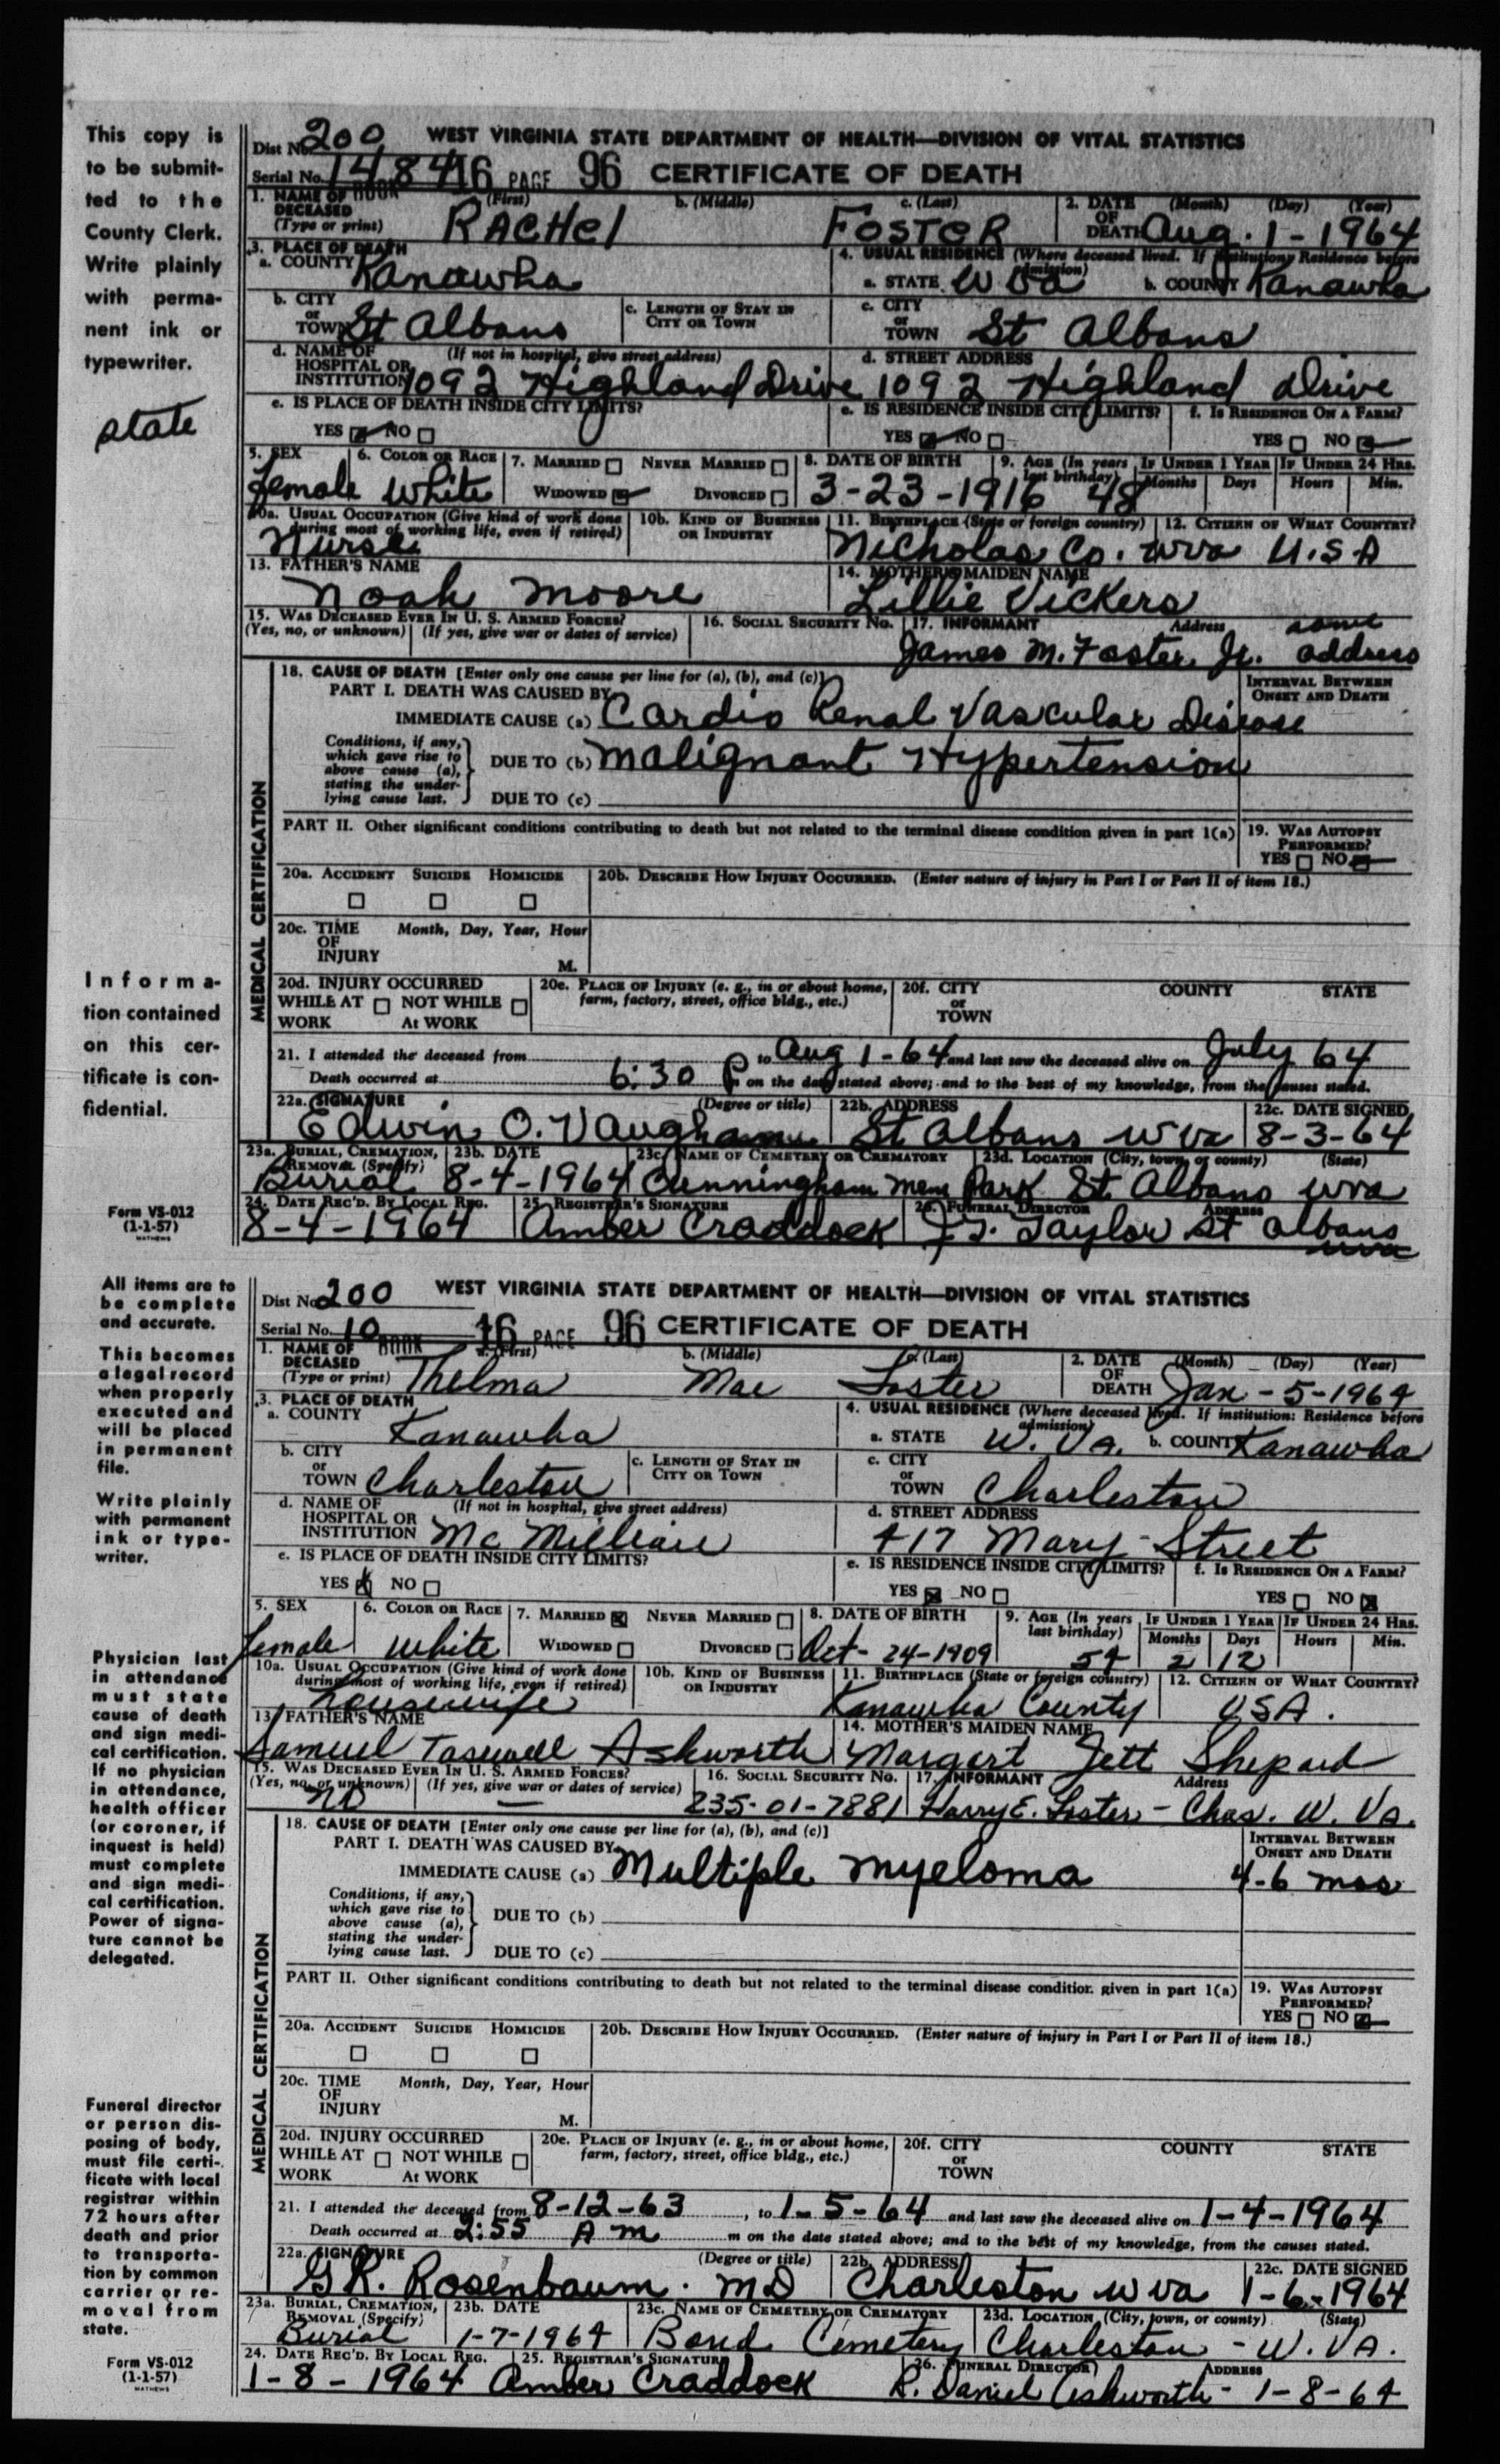 This copy is
to be submit-
ted to the
County Clerk.
Write plainly
with perma-
nent ink or
typewriter.
state
Informa-
tion contained
on this cer-
tificate is con-
fidential.
Form VS-012
(1-1-57)
MATHEWS
Dist No. 200 WEST VIRGINIA STATE DEPARTMENT OF HEALTH—DIVISION OF VITAL STATISTICS
Serial No. 1484 BOOK 16 PAGE 96 CERTIFICATE OF DEATH
1. NAME OF DECEASED (Type or print) (First) RACHEl b. (Middle) c. (Last) FOSTER 2. DATE OF DEATH (Month) (Day) (Year) Aug. 1-1964
3. PLACE OF DEATH 4. USUAL RESIDENCE (Where deceased lived. If institution: Residence before admission)
a. COUNTY Kanawha a. STATE W Va b. COUNTY Kanawha
b. CITY or TOWN St Albans c. LENGTH OF STAY IN CITY OR TOWN c. CITY or TOWN St Albans
d. NAME OF HOSPITAL OR INSTITUTION (If not in hospital, give street address) 1092 Highland Drive d. STREET ADDRESS 1092 Highland Drive
e. IS PLACE OF DEATH INSIDE CITY LIMITS? e. IS RESIDENCE INSIDE CITY LIMITS? f. IS RESIDENCE ON A FARM?
YES NO YES NO YES NO
5. SEX female 6. COLOR OR RACE White 7. MARRIED NEVER MARRIED WIDOWED DIVORCED 8. DATE OF BIRTH 3-23-1916 9. AGE (In years last birthday) 48 IF UNDER 1 YEAR Months Days IF UNDER 24 HRS. Hours Min.
10a. USUAL OCCUPATION (Give kind of work done during most of working life, even if retired) Nurse 10b. KIND OF BUSINESS OR INDUSTRY 11. BIRTHPLACE (State or foreign country) Nicholas Co. Wva 12. CITIZEN OF WHAT COUNTRY? U.S.A
13. FATHER'S NAME Noah Moore 14. MOTHER'S MAIDEN NAME Lillie Vickers
15. WAS DECEASED EVER IN U. S. ARMED FORCES? (Yes, no, or unknown) (If yes, give war or dates of service) 16. SOCIAL SECURITY No. 17. INFORMANT Address James M. Foster, Jr. same address
18. CAUSE OF DEATH [Enter only one cause per line for (a), (b), and (c)] INTERVAL BETWEEN ONSET AND DEATH
PART I. DEATH WAS CAUSED BY:
IMMEDIATE CAUSE (a) Cardio Renal Vascular Disease
Conditions, if any, which gave rise to above cause (a), stating the under- lying cause last. DUE TO (b) Malignant Hypertension
DUE TO (c)
PART II. Other significant conditions contributing to death but not related to the terminal disease condition given in part 1(a) 19. WAS AUTOPSY PERFORMED? YES NO
MEDICAL CERTIFICATION
20a. ACCIDENT SUICIDE HOMICIDE 20b. DESCRIBE HOW INJURY OCCURRED. (Enter nature of injury in Part I or Part II of item 18.)
20c. TIME OF INJURY Month, Day, Year, Hour M.
20d. INJURY OCCURRED WHILE AT WORK NOT WHILE At WORK 20e. PLACE OF INJURY (e. g., in or about home, farm, factory, street, office bldg., etc.) 20f. CITY or TOWN COUNTY STATE
21. I attended the deceased from to Aug 1-64 and last saw the deceased alive on July 64
Death occurred at 6:30 P m on the date stated above; and to the best of my knowledge, from the causes stated.
22a. SIGNATURE (Degree or title) Edwin O. Vaughan 22b. ADDRESS St Albans W Va 22c. DATE SIGNED 8-3-64
23a. BURIAL, CREMATION, REMOVAL (Specify) Burial 23b. DATE 8-4-1964 23c. NAME OF CEMETERY OR CREMATORY Cunningham Mem Park 23d. LOCATION (City, town, or county) (State) St Albans Wva
24. DATE REC'D. BY LOCAL REG. 8-4-1964 25. REGISTRAR'S SIGNATURE Amber Craddock 26. FUNERAL DIRECTOR ADDRESS Taylor St Albans Wva
All items are to
be complete
and accurate.
This becomes
a legal record
when properly
executed and
will be placed
in permanent
file.
Write plainly
with permanent
ink or type-
writer.
Physician last
in attendance
must state
cause of death
and sign medi-
cal certification.
If no physician
in attendance,
health officer
(or coroner, if
inquest is held)
must complete
and sign medi-
cal certification.
Power of signa-
ture cannot be
delegated.
Funeral director
or person dis-
posing of body,
must file certi-
ficate with local
registrar within
72 hours after
death and prior
to transporta-
tion by common
carrier or re-
moval from
state.
Form VS-012
(1-1-57)
MATHEWS
Dist No. 200 WEST VIRGINIA STATE DEPARTMENT OF HEALTH—DIVISION OF VITAL STATISTICS
Serial No. 10 BOOK 16 PAGE 96 CERTIFICATE OF DEATH
1. NAME OF DECEASED (Type or print) a. (First) Thelma b. (Middle) Mae c. (Last) Foster 2. DATE OF DEATH (Month) (Day) (Year) Jan-5-1964
3. PLACE OF DEATH 4. USUAL RESIDENCE (Where deceased lived. If institution: Residence before admission)
a. COUNTY Kanawha a. STATE W. Va. b. COUNTY Kanawha
b. CITY or TOWN Charleston c. LENGTH OF STAY IN CITY OR TOWN c. CITY or TOWN Charleston
d. NAME OF HOSPITAL OR INSTITUTION (If not in hospital, give street address) Mc Millian d. STREET ADDRESS 417 Mary Street
e. IS PLACE OF DEATH INSIDE CITY LIMITS? e. IS RESIDENCE INSIDE CITY LIMITS? f. IS RESIDENCE ON A FARM?
YES NO YES NO YES NO
5. SEX female 6. COLOR OR RACE White 7. MARRIED NEVER MARRIED WIDOWED DIVORCED 8. DATE OF BIRTH Oct-24-1909 9. AGE (In years last birthday) 54 IF UNDER 1 YEAR Months 2 Days 12 IF UNDER 24 HRS. Hours Min.
10a. USUAL OCCUPATION (Give kind of work done during most of working life, even if retired) housewife 10b. KIND OF BUSINESS OR INDUSTRY 11. BIRTHPLACE (State or foreign country) Kanawha County 12. CITIZEN OF WHAT COUNTRY? USA.
13. FATHER'S NAME Samuel Taswell Ashworth 14. MOTHER'S MAIDEN NAME Margart Jett Shepard
15. WAS DECEASED EVER IN U. S. ARMED FORCES? (Yes, no, or unknown) NO (If yes, give war or dates of service) — 16. SOCIAL SECURITY No. 235-01-7881 17. INFORMANT Address Harry E. Foster - Chas. W. Va.
18. CAUSE OF DEATH [Enter only one cause per line for (a), (b), and (c)] INTERVAL BETWEEN ONSET AND DEATH
PART I. DEATH WAS CAUSED BY:
IMMEDIATE CAUSE (a) Multiple myeloma 4-6 mos
Conditions, if any, which gave rise to above cause (a), stating the under- lying cause last. DUE TO (b)
DUE TO (c)
PART II. Other significant conditions contributing to death but not related to the terminal disease condition given in part 1(a) 19. WAS AUTOPSY PERFORMED? YES NO
MEDICAL CERTIFICATION
20a. ACCIDENT SUICIDE HOMICIDE 20b. DESCRIBE HOW INJURY OCCURRED. (Enter nature of injury in Part I or Part II of item 18.)
20c. TIME OF INJURY Month, Day, Year, Hour M.
20d. INJURY OCCURRED WHILE AT WORK NOT WHILE At WORK 20e. PLACE OF INJURY (e. g., in or about home, farm, factory, street, office bldg., etc.) 20f. CITY or TOWN COUNTY STATE
21. I attended the deceased from 8-12-63, to 1-5-64 and last saw the deceased alive on 1-4-1964
Death occurred at 2:55 A m m on the date stated above; and to the best of my knowledge, from the causes stated.
22a. SIGNATURE (Degree or title) G R. Rosenbaum. MD 22b. ADDRESS Charleston W Va 22c. DATE SIGNED 1-6-1964
23a. BURIAL, CREMATION, REMOVAL (Specify) Burial 23b. DATE 1-7-1964 23c. NAME OF CEMETERY OR CREMATORY Bond Cemetery 23d. LOCATION (City, town, or county) (State) Charleston - W. VA.
24. DATE REC'D. BY LOCAL REG. 1-8-1964 25. REGISTRAR'S SIGNATURE Amber Craddock 26. FUNERAL DIRECTOR ADDRESS R. Daniel Ashworth - 1-8-64